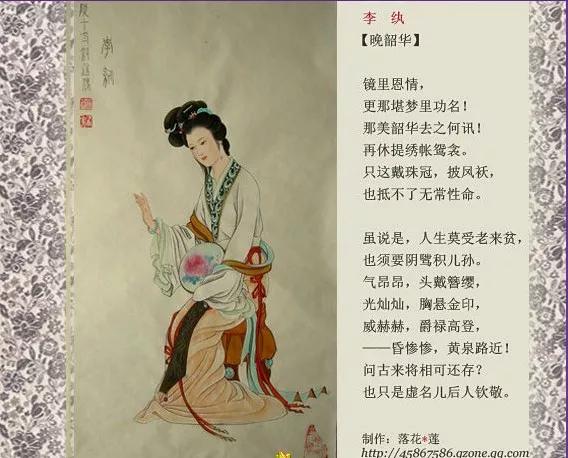 李紈
李 纨
【晚韶华】
镜里恩情，
更那堪梦里功名！
那美韶华去之何讯！
再休提绣帐鸳衾。
只这戴珠冠，披凤袄，
也抵不了无常性命。
虽说是，人生莫受老来贫，
也须要阴骘积儿孙。
气昂昂，头戴簪缨，
光灿灿，胸悬金印，
威赫赫，爵禄高登，
——昏惨惨，黄泉路近！
问古来将相可还存？
也只是虚名儿后人钦敬。
制作：落花*莲
http://45867586.qzone.qq.com